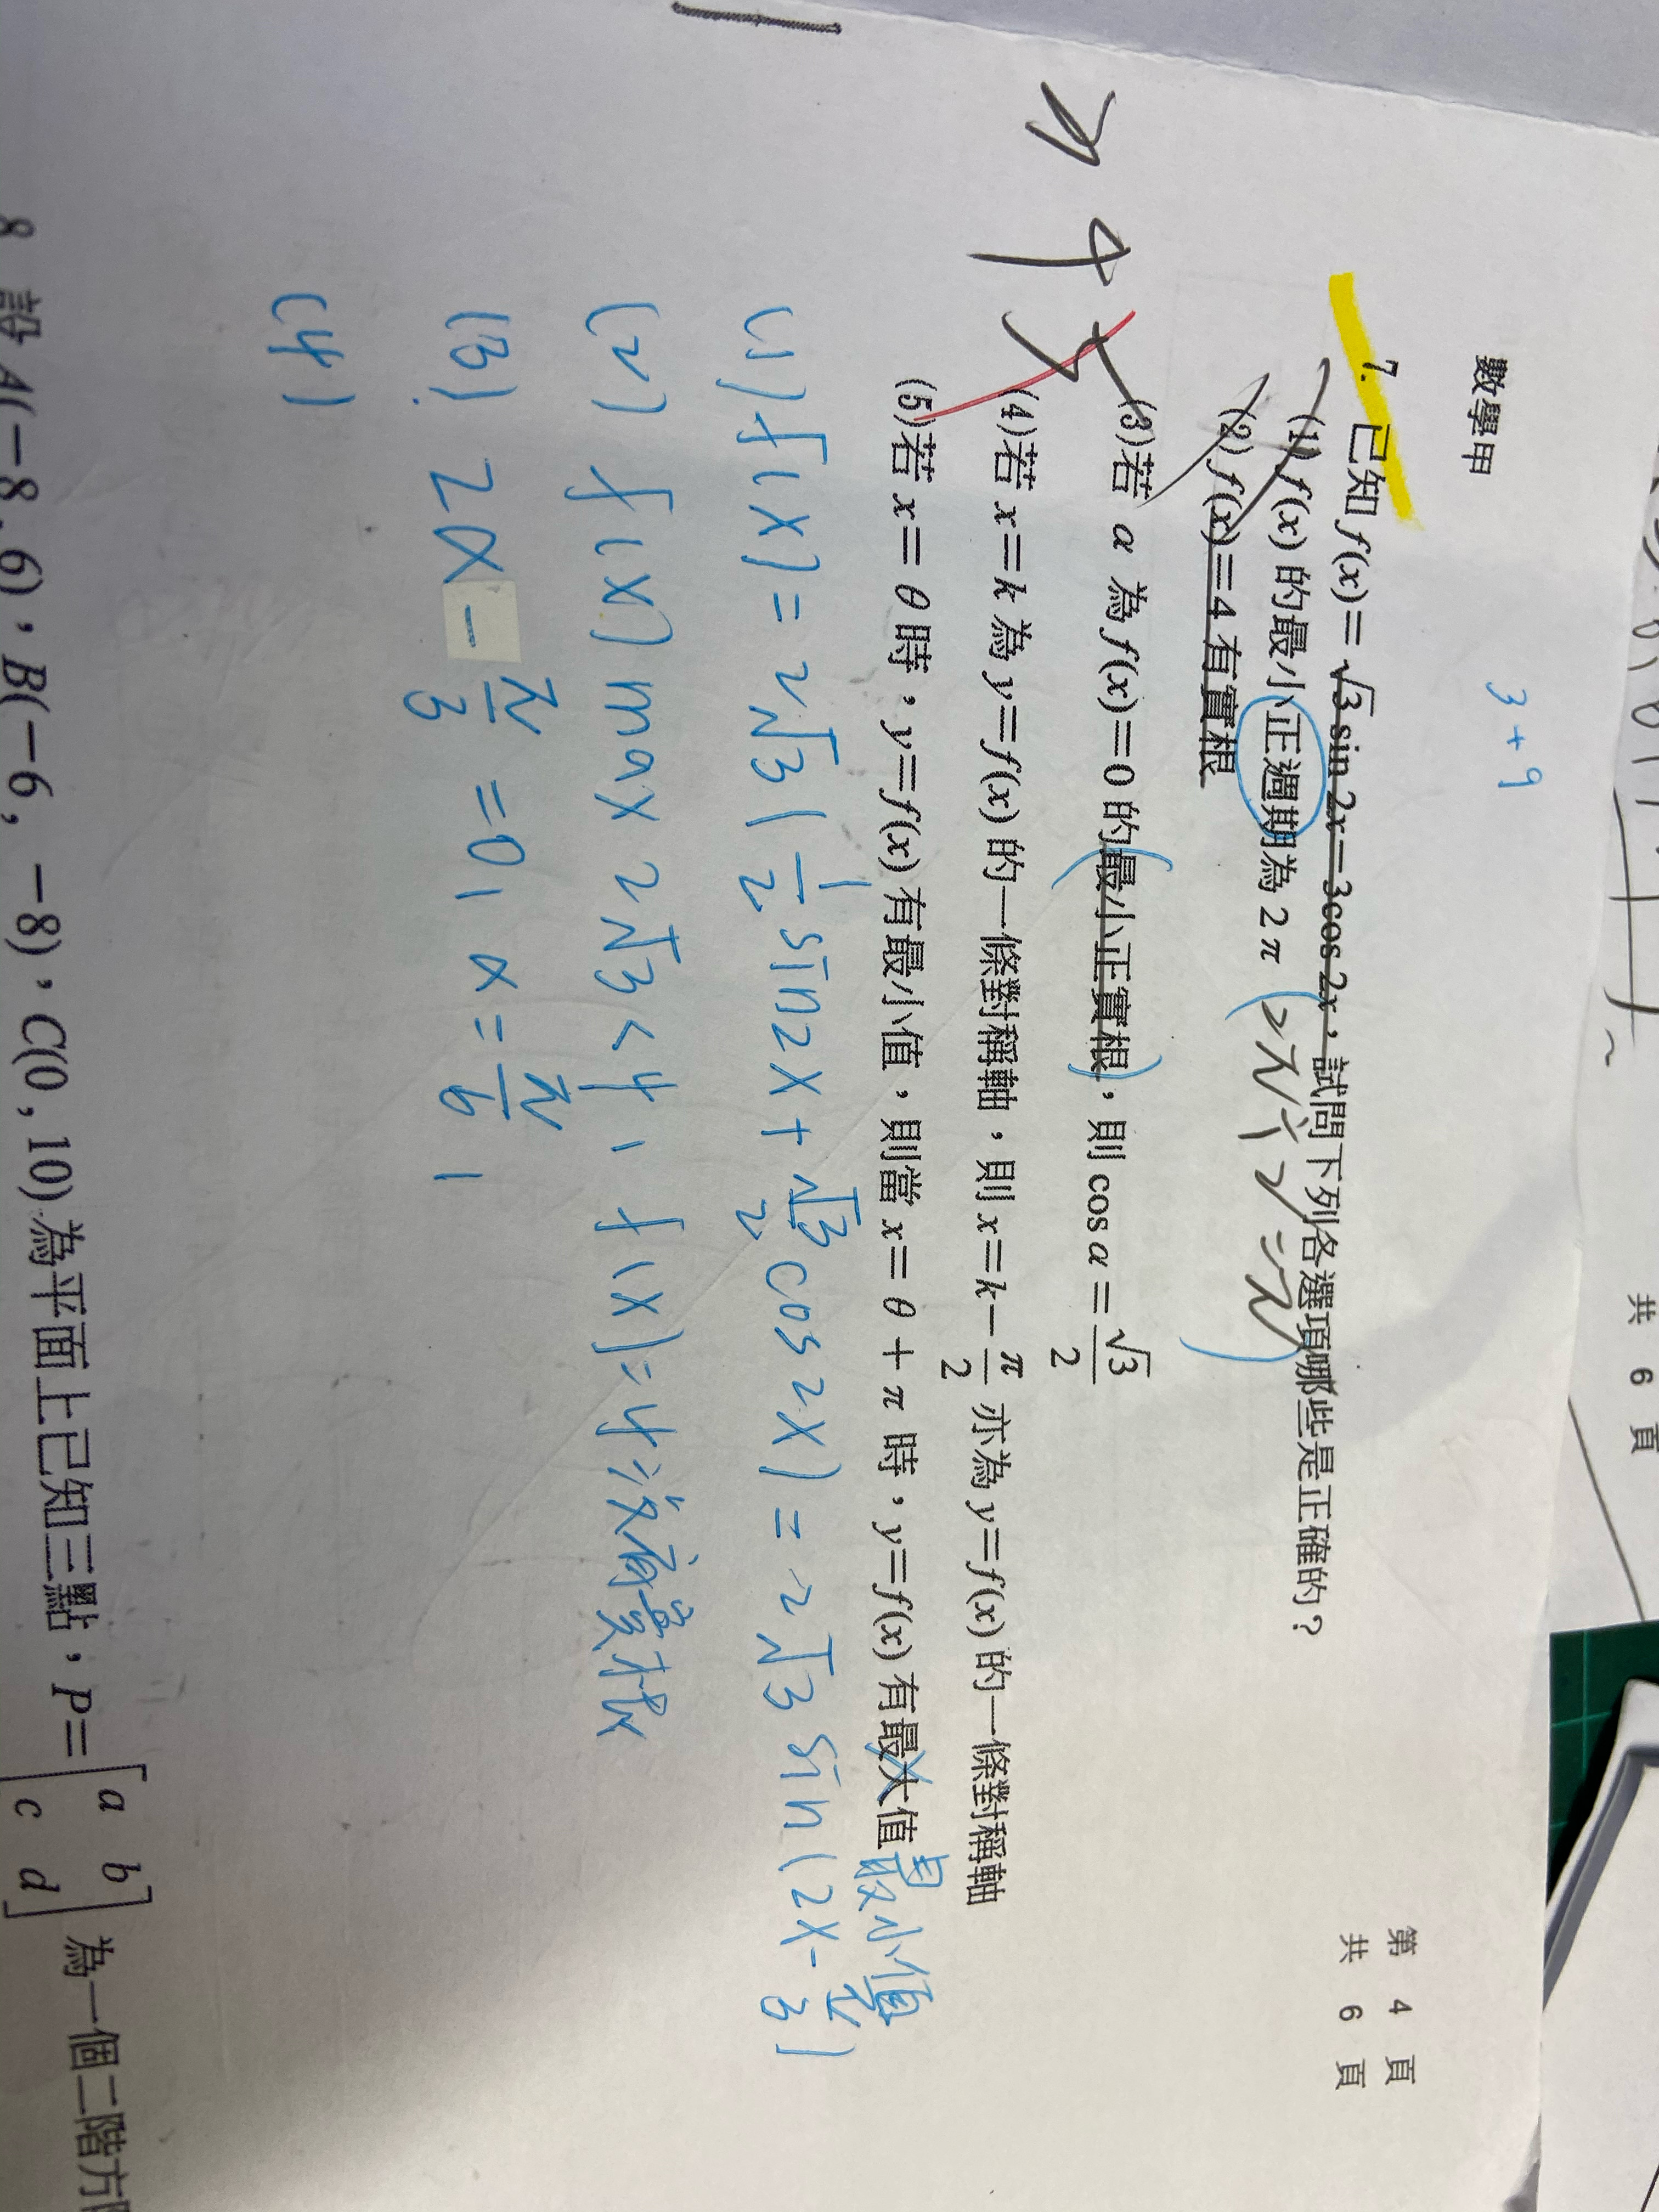 共 6 頁
第 4 頁
共 6 頁
數學甲
3+9
7. 已知 f(x)=√3 sin 2x−3cos 2x，試問下列各選項哪些是正確的？
(1) f(x) 的最小正週期為 2π (2π÷2=π)
(2) f(x)=4 有實根
(3)若 α 為 f(x)=0 的最小正實根，則 cos α = √3/2
(4)若 x=k 為 y=f(x) 的一條對稱軸，則 x=k−π/2 亦為 y=f(x) 的一條對稱軸
(5)若 x= θ 時，y=f(x) 有最小值，則當 x= θ + π 時，y=f(x) 有最大值 最小值
(1) f(x) = 2√3 (1/2 sin2x + √3/2 cos2x) = 2√3 sin (2x-π/3)
(2) f(x) max 2√3 < 4, f(x)=4 沒有實根
(3) 2α - π/3 = 0, α = π/6,
(4)
8. 設 A(−8, 6)，B(−6, −8)，C(0, 10) 為平面上已知三點，P=[a b
c d] 為一個二階方